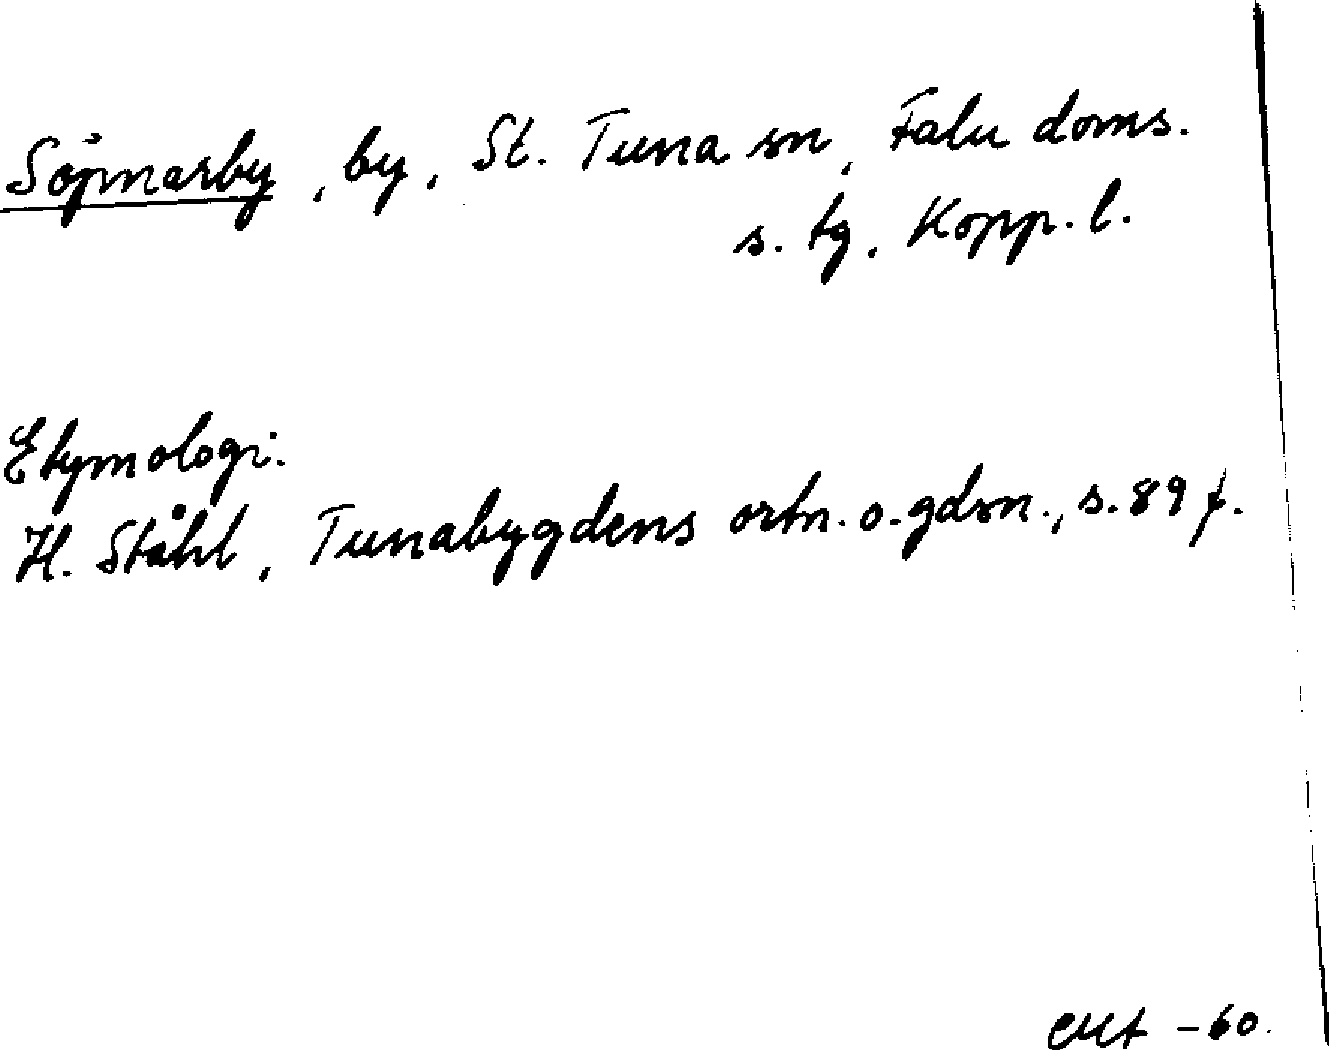 Söpnarby, by, St. Tuna sn, Falu doms.
s. tg, Kopp. l.
Etymologi.
H. Ståhl, Tunabygdens ortn. o. gdsn., s. 89 f.
-60.